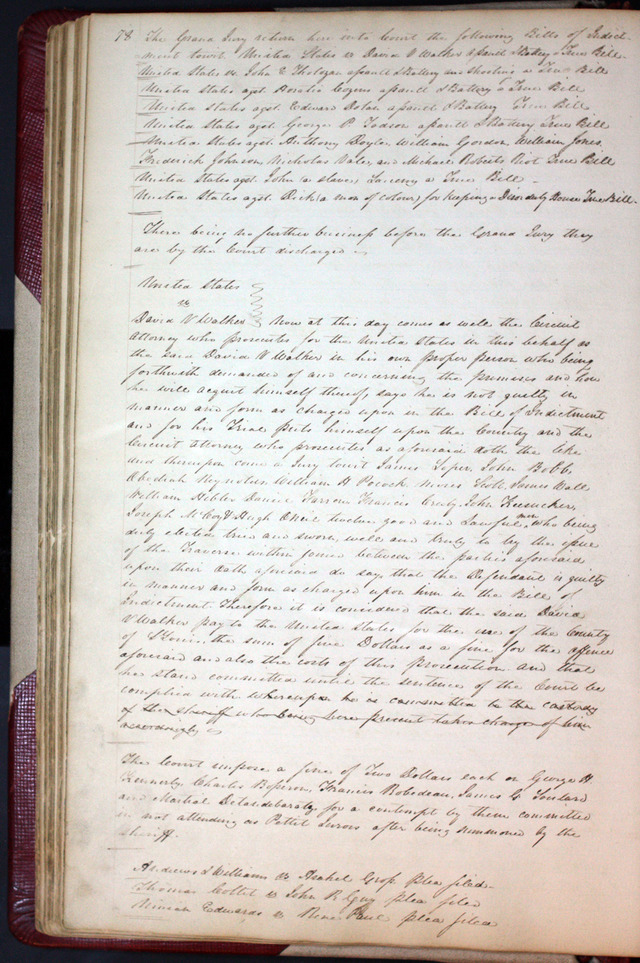 78 The Grand Jury return here into Court the following Bills of Indict
ment towit United States vs David V Walker assault & Battery a True Bill
United States vs John E Tholozan assault & Battery and shooting a True Bill
United States agst Horatio Cozens assault & Battery a True Bill
United States agst Edward Dolan assault & Battery True Bill
United States agst George P Todson assault & Battery True Bill
United States agst Anthony Doyle, William Gordon, William Jones,
Frederick Johnson, Nicholas Vale, and Michael Roberts Riot True Bill
United States agst John (a slave) Larceny a True Bill
United States agst Dick (a man of colour) for keeping a Disorderly House True Bill.
There being no further business before the Grand Jury they
are by the Court discharged
United States
vs
David V Walker Now at this day comes as well the Circuit
Attorney who prosecutes for the United States in this behalf as
the said David V Walker in his own proper person who being
forthwith demanded of and concerning the premises and how
he will acquit himself thereof, says he is not guilty in
manner and form as charged upon in the Bill of Indictment
and for his Trial puts himself upon the Country and the
Circuit Attorney who prosecutes as aforesaid doth the like
and thereupon came a Jury towit James Loper, John Bobb,
Obediah Reynolds, William H Pocock, James Wall
William Hibler Daniel Farrow Francis John
Joseph McCoy & Hugh Oneil twelve good and Lawful men, who being
duly elected tried and sworn well and truly to try the issue
of the Traverse within joined between the parties aforesaid
upon their Oath aforesaid do say that the Defendant is guilty
in manner and form as charged upon him in the Bill of
Indictment. Therefore it is considered that the said David
V Walker pay to the United States for the use of the County
of St Louis, the sum of five Dollars as a fine for the offence
aforesaid and also the costs of this prosecution and that
he stand committed until the sentence of the Court be
complied with whereupon he is committed to the custody
of the sheriff who being here present takes charge of him
accordingly
The Court impose a fine of Two Dollars each on George H
Kennerly, Charles Francis Robedeau, James G Soulard
and for a contempt by them committed
in not attending as Pettit Jurors after being summoned by the
sheriff.
Andrews & Williams vs Asahel Gross plea filed
Thomas Cottet vs John R Guy plea filed
Ninian Edwards vs Rene Paul plea filed